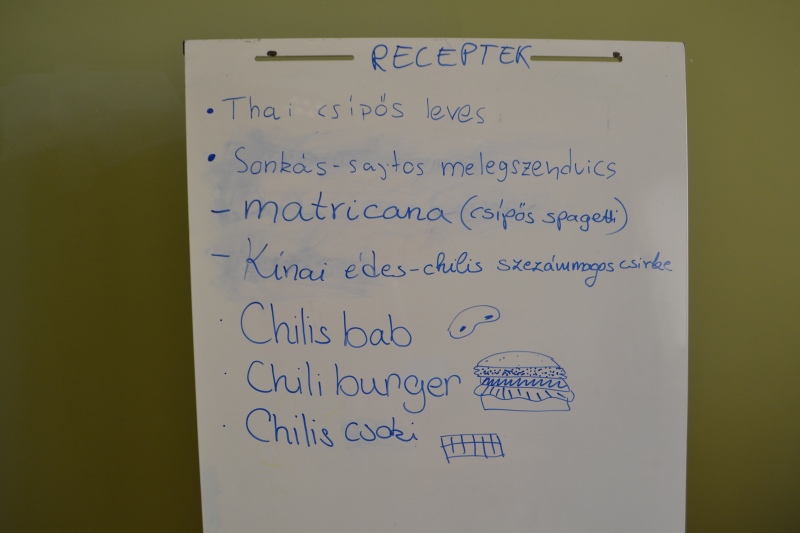 RECEPTEK
• Thai csípős leves
• Sonkás-sajtos melegszendvics
- matricana (csípős spagetti)
- Kínai édes-chilis szezámmagos csirke
· Chilis bab
· Chili burger
· Chilis csoki